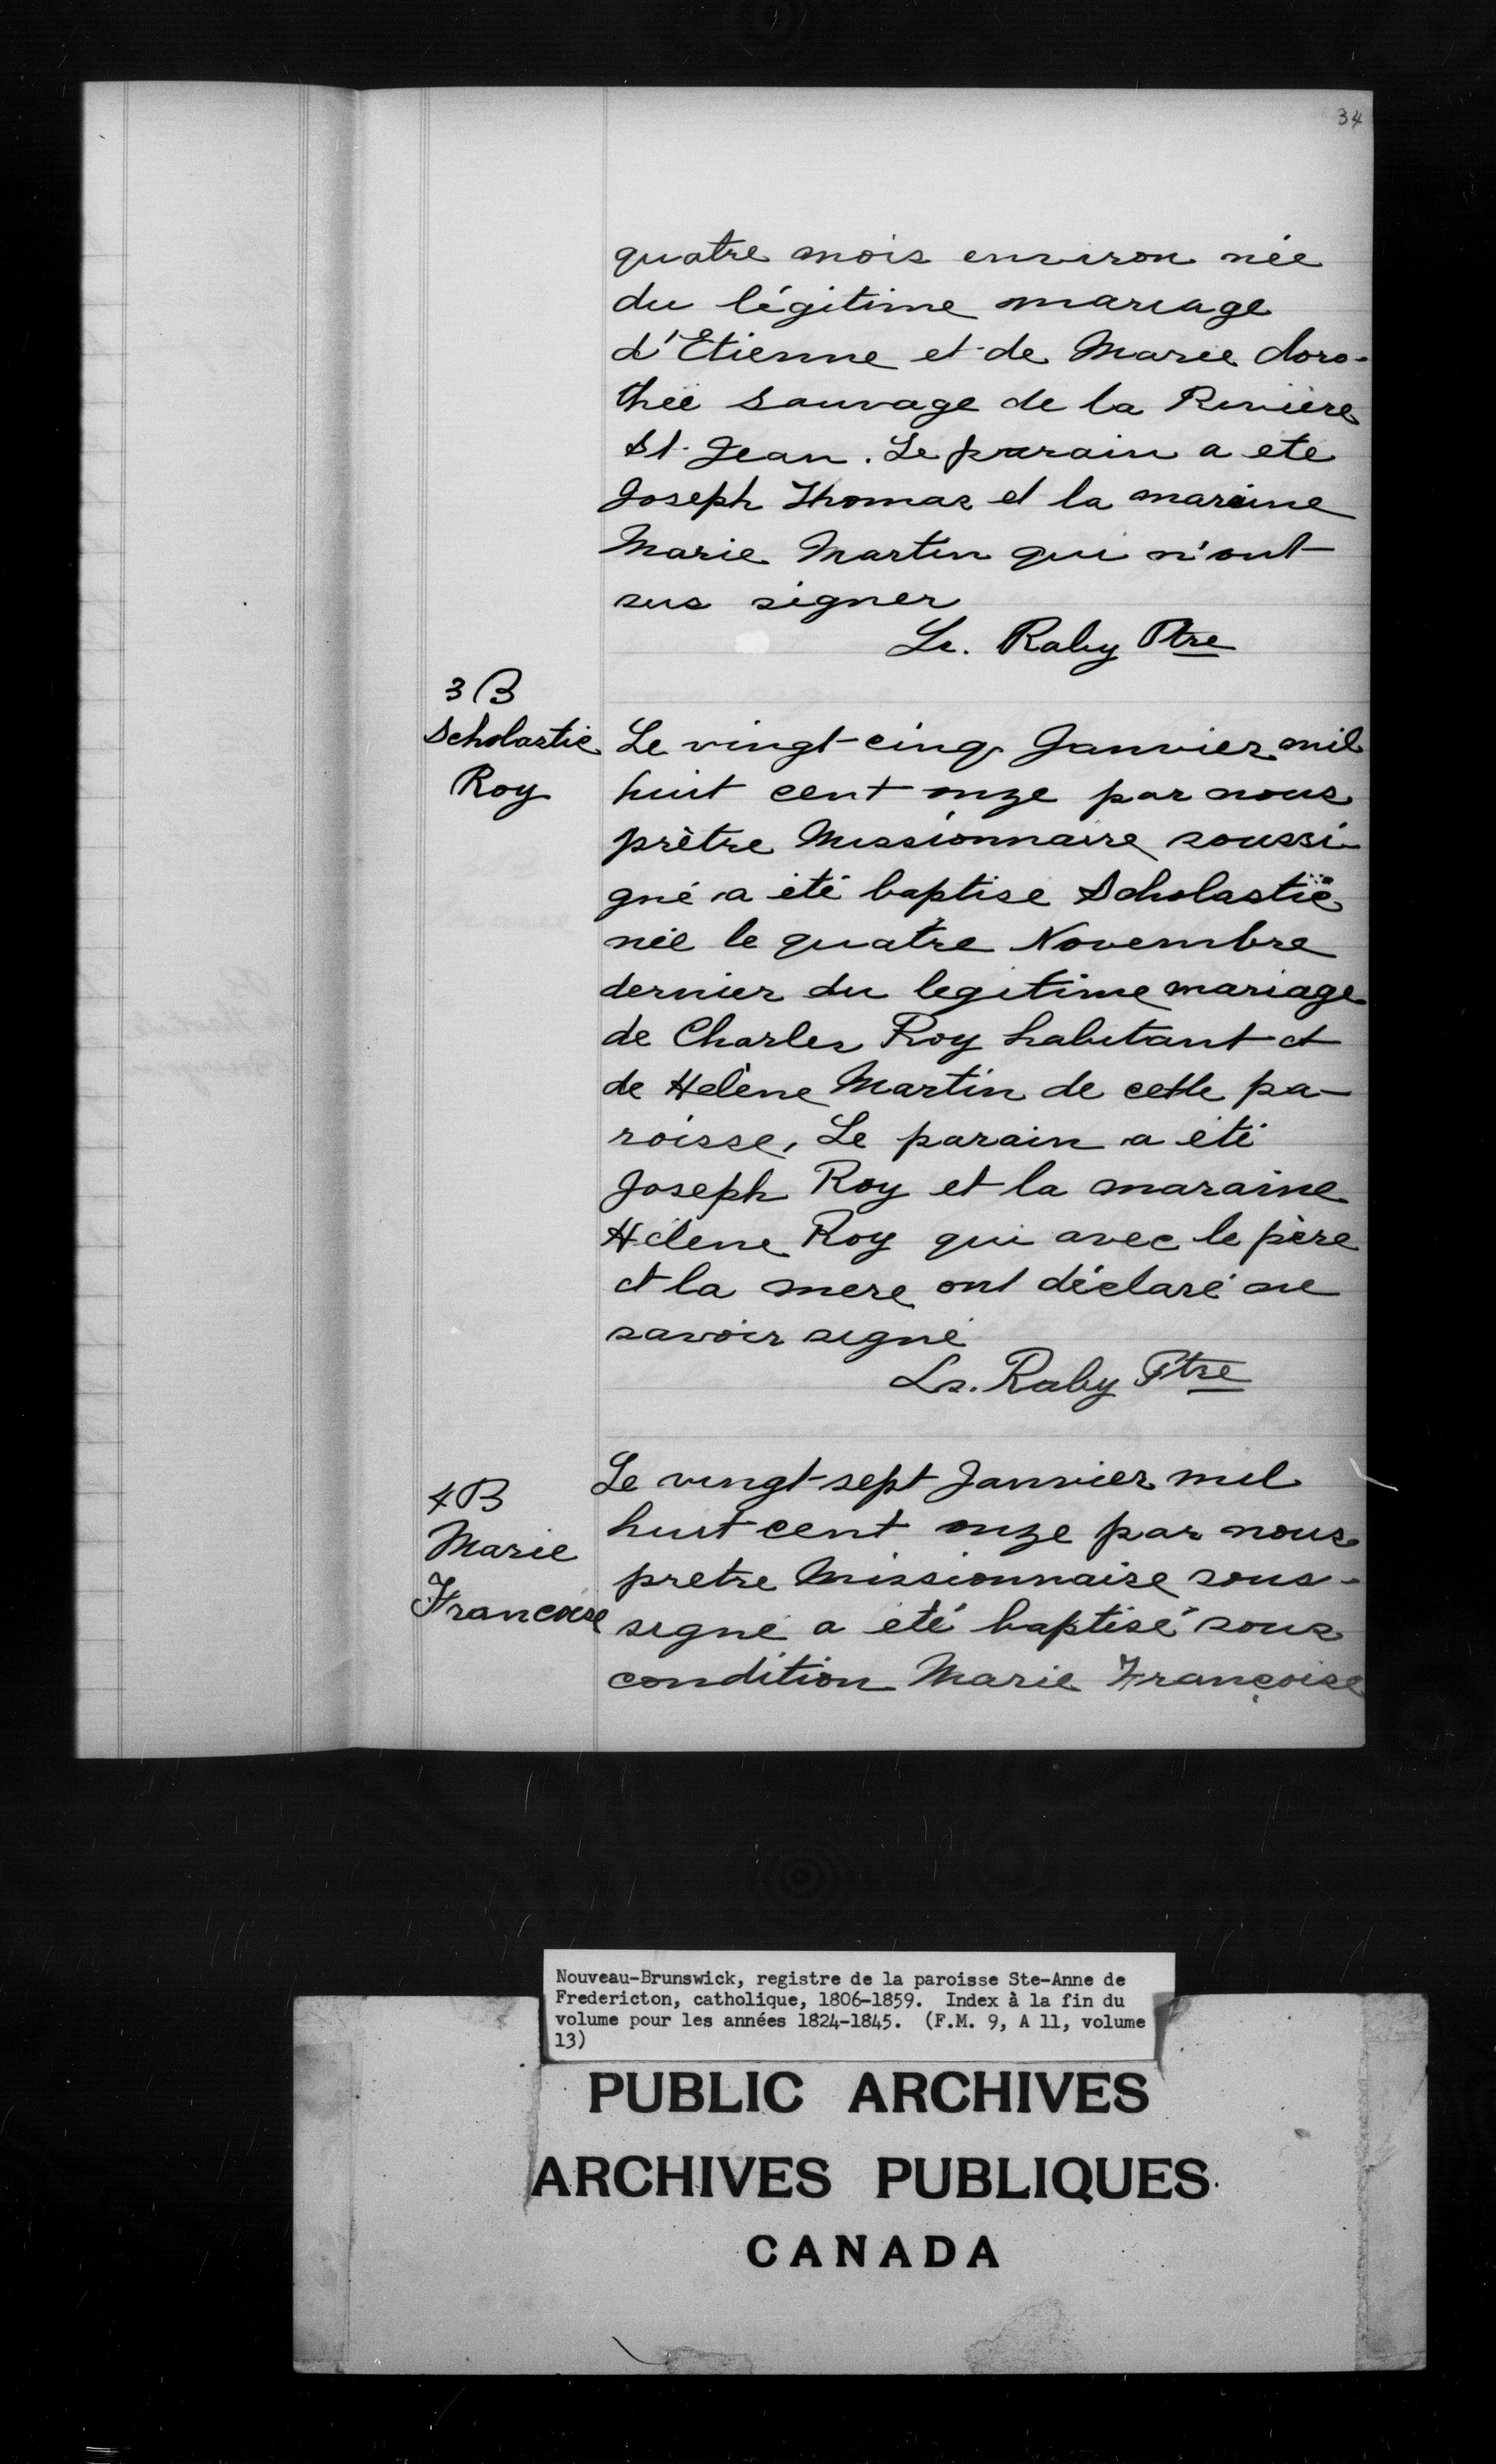 34
quatre mois environ née
du légitime mariage
d'Etienne et de Marie doro-
thée sauvage de la Rivière
St. Jean. Le parain a ete
Joseph Thomas et la maraine
Marie Martin qui n'ont
sus signer
Ls. Raby Ptre
3 B
Scholastie
Roy
Le vingt-cinq Janvier mil
huit cent onze par nous
prètre Missionnaire soussi-
gné a été baptise Scholastië
née le quatre Novembre
dernier du legitime mariage
de Charles Roy habitant et
de Helène Martin de cette pa-
roisse, Le parain a été
Joseph Roy et la maraine
Hélene Roy qui avec le père
et la mere ont déclaré ne
savoir signé
Ls. Raby Ptre
4 B
Marie
Francoise
Le vingt-sept Janvier mil
huit cent onze par nous
pretre Missionnaire sous-
signé a été baptisé sous
condition Marie Françoise
Nouveau-Brunswick, registre de la paroisse Ste-Anne de
Fredericton, catholique, 1806-1859. Index à la fin du
volume pour les années 1824-1845. (F.M. 9, A 11, volume
13)
PUBLIC ARCHIVES
ARCHIVES PUBLIQUES
CANADA